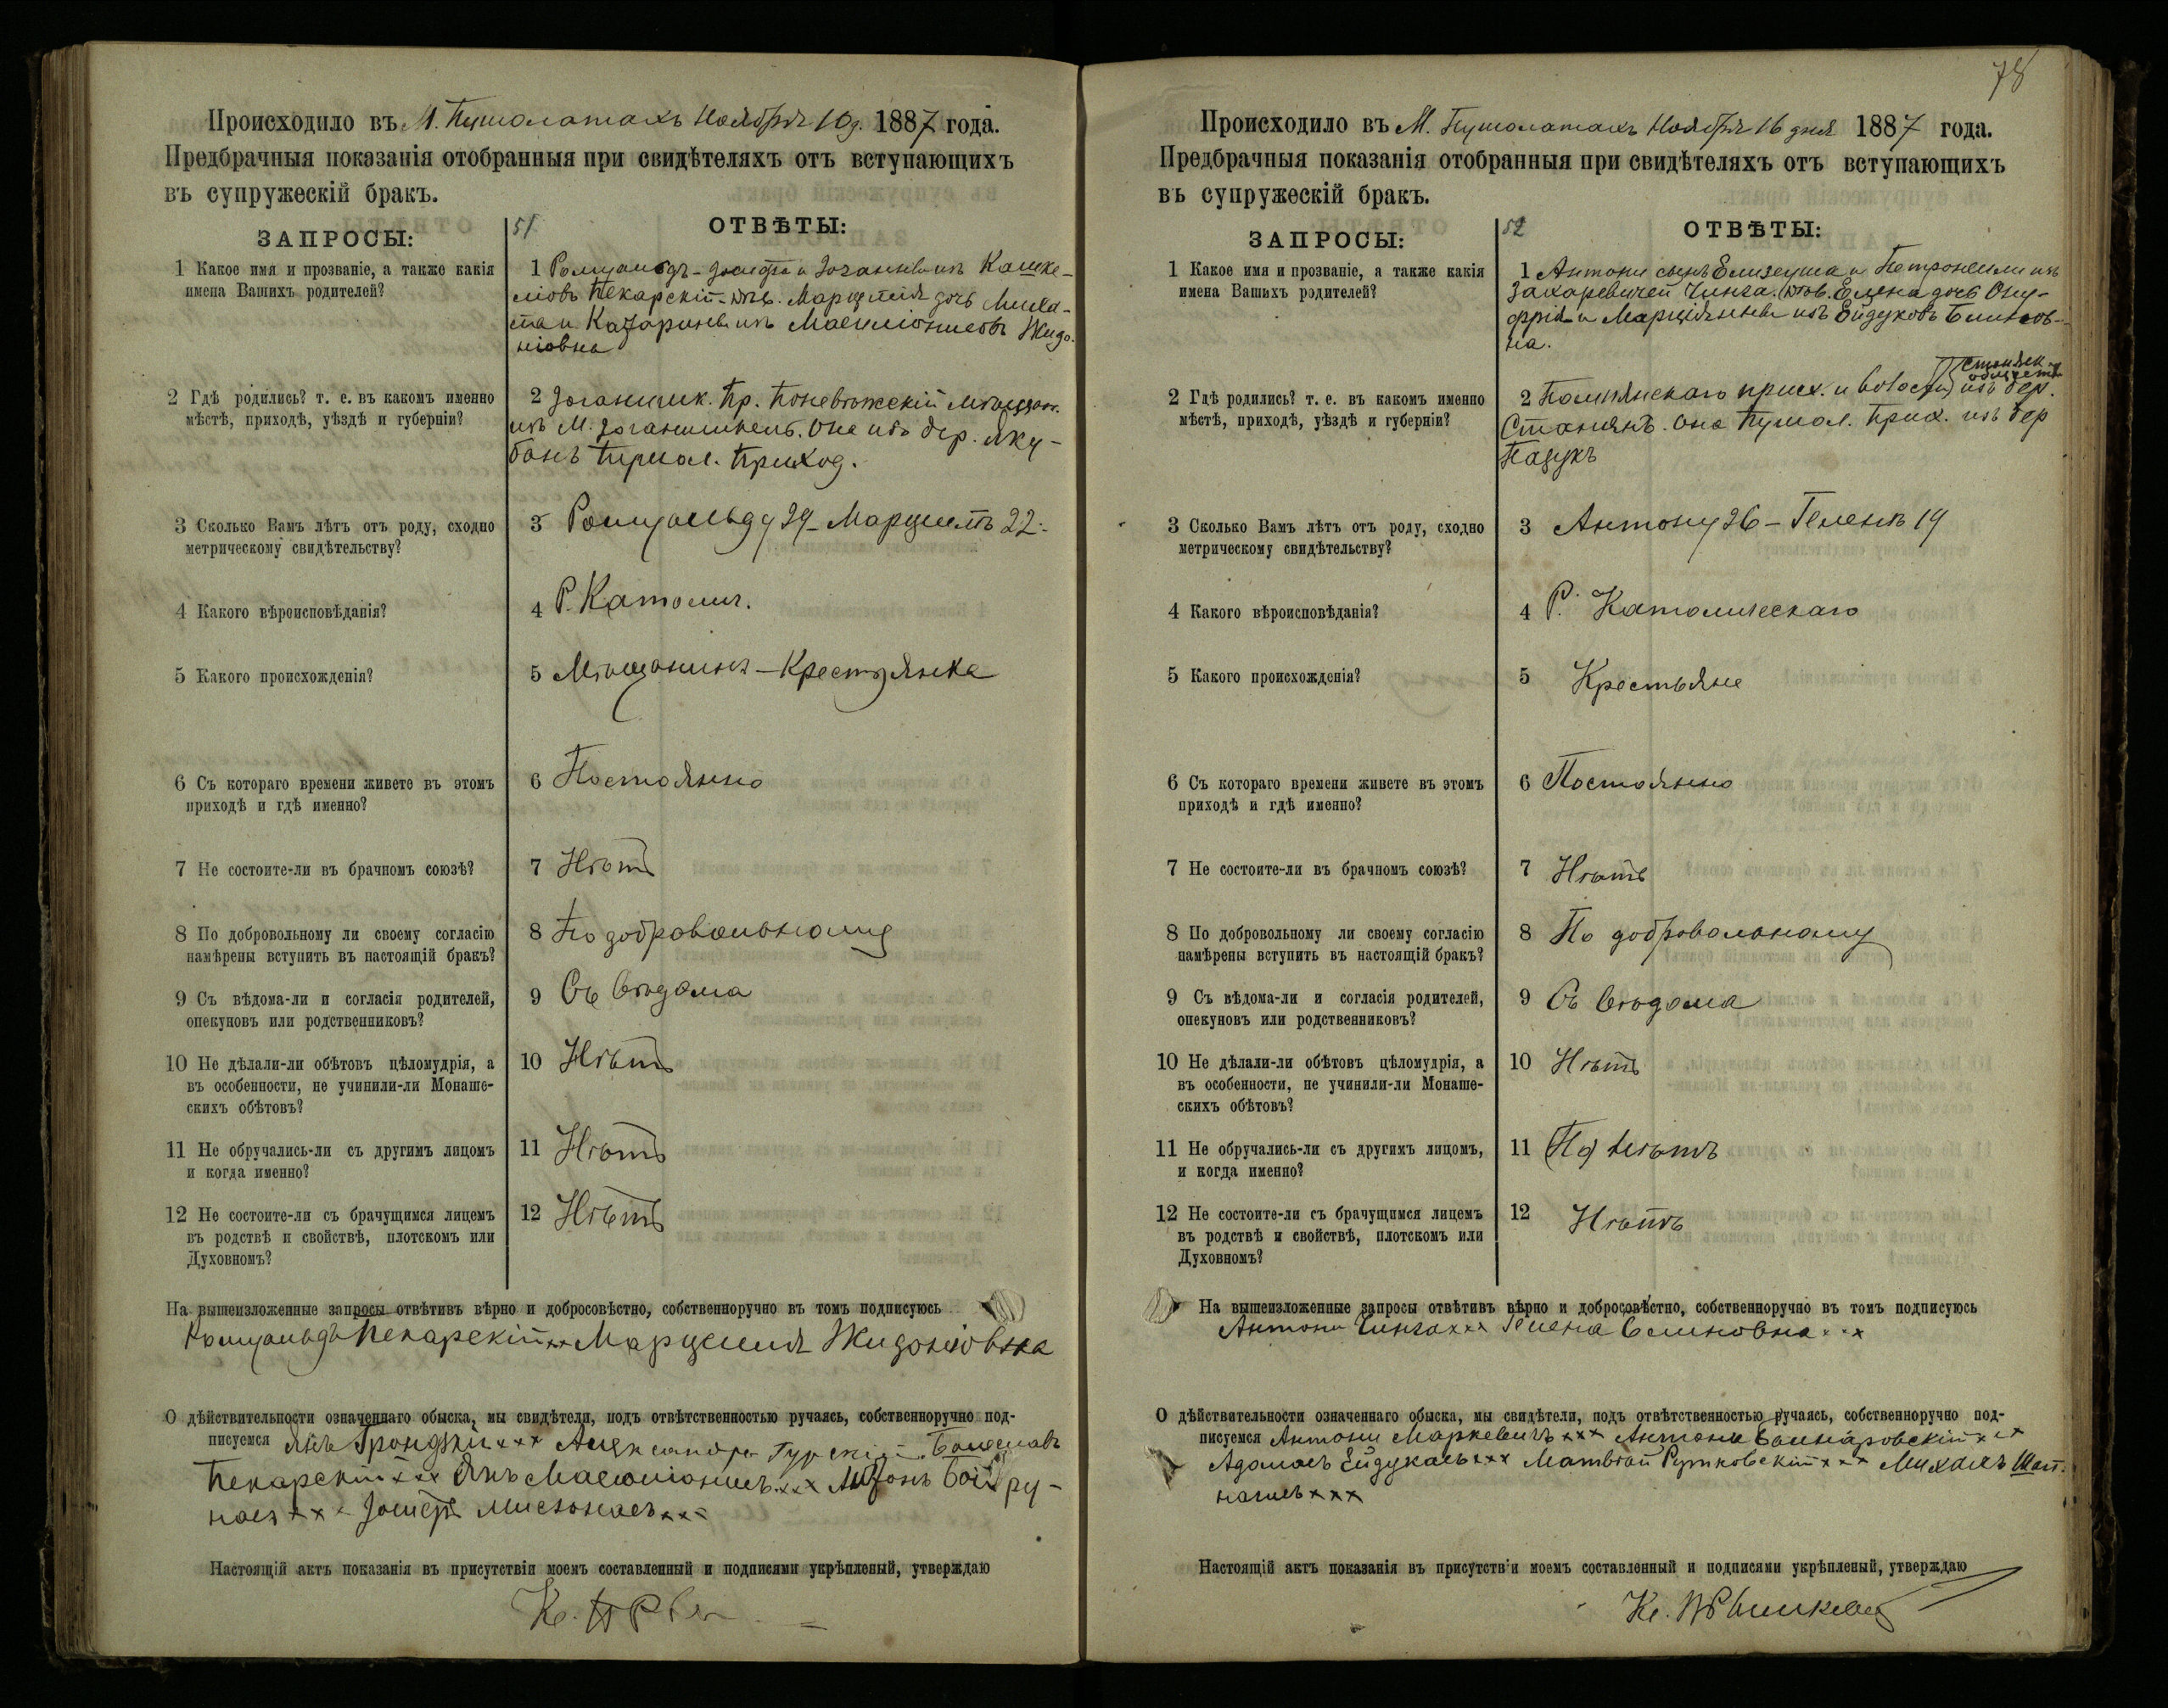 Происходило въ М. Пушолатахъ Ноября 10 д. 1887 года.
Предбрачныя показанія отобранныя при свидѣтеляхъ отъ вступающихъ
въ супружескій бракъ.
51
ЗАПРОСЫ:
ОТВѢТЫ:
1 Какое имя и прозваніе, а также какія
имена Вашихъ родителей?
1 Ромуальдъ
Пекарскій
Жидо-
ніовна
2 Гдѣ родились? т. е. въ какомъ именно
мѣстѣ, приходѣ, уѣздѣ и губерніи?
2 Пр. Поневѣжскій
изъ М. Она изъ дер. Яку-
банъ Пушол. приход.
3 Сколько Вамъ лѣтъ отъ роду, сходно
метрическому свидѣтельству?
3 Ромуальду 29 – Марцелѣ 22.
4 Какого вѣроисповѣданія?
4 Р. Католич.
5 Какого происхожденія?
5 Мѣщанинъ – Крестьянка
6 Съ котораго времени живете въ этомъ
приходѣ и гдѣ именно?
6 Постоянно
7 Не состоите-ли въ брачномъ союзѣ?
7 Нѣтъ
8 По добровольному ли своему согласію
намѣрены вступить въ настоящій бракъ?
8 По добровольному
9 Съ вѣдома-ли и согласія родителей,
опекуновъ или родственниковъ?
9 Съ вѣдома
10 Не дѣлали-ли обѣтовъ цѣломудрія, а
въ особенности, не учинили-ли Монаше-
скихъ обѣтовъ?
10 Нѣтъ
11 Не обручались-ли съ другимъ лицомъ
и когда именно?
11 Нѣтъ
12 Не состоите-ли съ брачущимся лицемъ
въ родствѣ и свойствѣ, плотскомъ или
Духовномъ?
12 Нѣтъ
На вышеизложенные запросы отвѣтивъ вѣрно и добросовѣстно, собственноручно въ томъ подписуюсь
Ромуальдъ Пекарскій Марцелия Жидоніовна
О дѣйствительности означеннаго обыска, мы свидѣтели, подъ отвѣтственностью ручаясь, собственноручно под-
писуемся Янъ ххх Александръ Гурскій Болеславъ
Пекарскій ххх Янъ
Настоящій актъ показанія въ присутствіи моемъ составленный и подписями укрѣпленый, утверждаю
78
Происходило въ М. Пушолатахъ Ноября 16 дня 1887 года.
Предбрачныя показанія отобранныя при свидѣтеляхъ отъ вступающихъ
въ супружескій бракъ.
52
ЗАПРОСЫ:
ОТВѢТЫ:
1 Какое имя и прозваніе, а также какія
имена Вашихъ родителей?
1 Антони сынъ Елизеуша и Петронели изъ
Захаревичей Чинга. Елена дочь Ону-
фрія и Марціянны изъ Ейдуковъ
на.
2 Гдѣ родились? т. е. въ какомъ именно
мѣстѣ, приходѣ, уѣздѣ и губерніи?
2 прих. и волости изъ дер.
Станянъ. Она Пушол. прих. изъ дер
3 Сколько Вамъ лѣтъ отъ роду, сходно
метрическому свидѣтельству?
3 Антону 26 – Геленѣ 19
4 Какого вѣроисповѣданія?
4 Р. Католическаго
5 Какого происхожденія?
5 Крестьяне
6 Съ котораго времени живете въ этомъ
приходѣ и гдѣ именно?
6 Постоянно
7 Не состоите-ли въ брачномъ союзѣ?
7 Нѣтъ
8 По добровольному ли своему согласію
намѣрены вступить въ настоящій бракъ?
8 По добровольному
9 Съ вѣдома-ли и согласія родителей,
опекуновъ или родственниковъ?
9 Съ вѣдома
10 Не дѣлали-ли обѣтовъ цѣломудрія, а
въ особенности, не учинили-ли Монаше-
скихъ обѣтовъ?
10 Нѣтъ
11 Не обручались-ли съ другимъ лицомъ,
и когда именно?
11 (По) Нѣтъ
12 Не состоите-ли съ брачущимся лицемъ
въ родствѣ и свойствѣ, плотскомъ или
Духовномъ?
12 Нѣтъ
На вышеизложенные запросы отвѣтивъ вѣрно и добросовѣстно, собственноручно въ томъ подписуюсь
Антони Чинга ххх Гелена ххх
О дѣйствительности означеннаго обыска, мы свидѣтели, подъ отвѣтственностью ручаясь, собственноручно под-
писуемся Антони Маркевичъ ххх Антони ххх
Адамъ Ейдукасъ ххх Матвѣй Рутковскій ххх Михалъ
ххх
Настоящій актъ показанія въ присутствіи моемъ составленный и подписями укрѣпленый, утверждаю